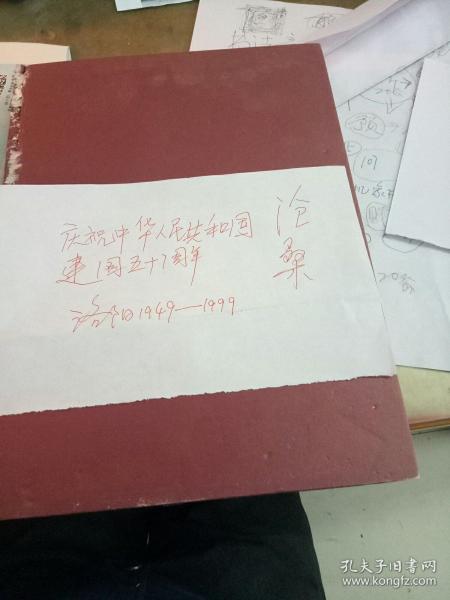 沧桑
庆祝中华人民共和国
建国五十周年
洛阳1949—1999
孔夫子旧书网
www.kongfz.com